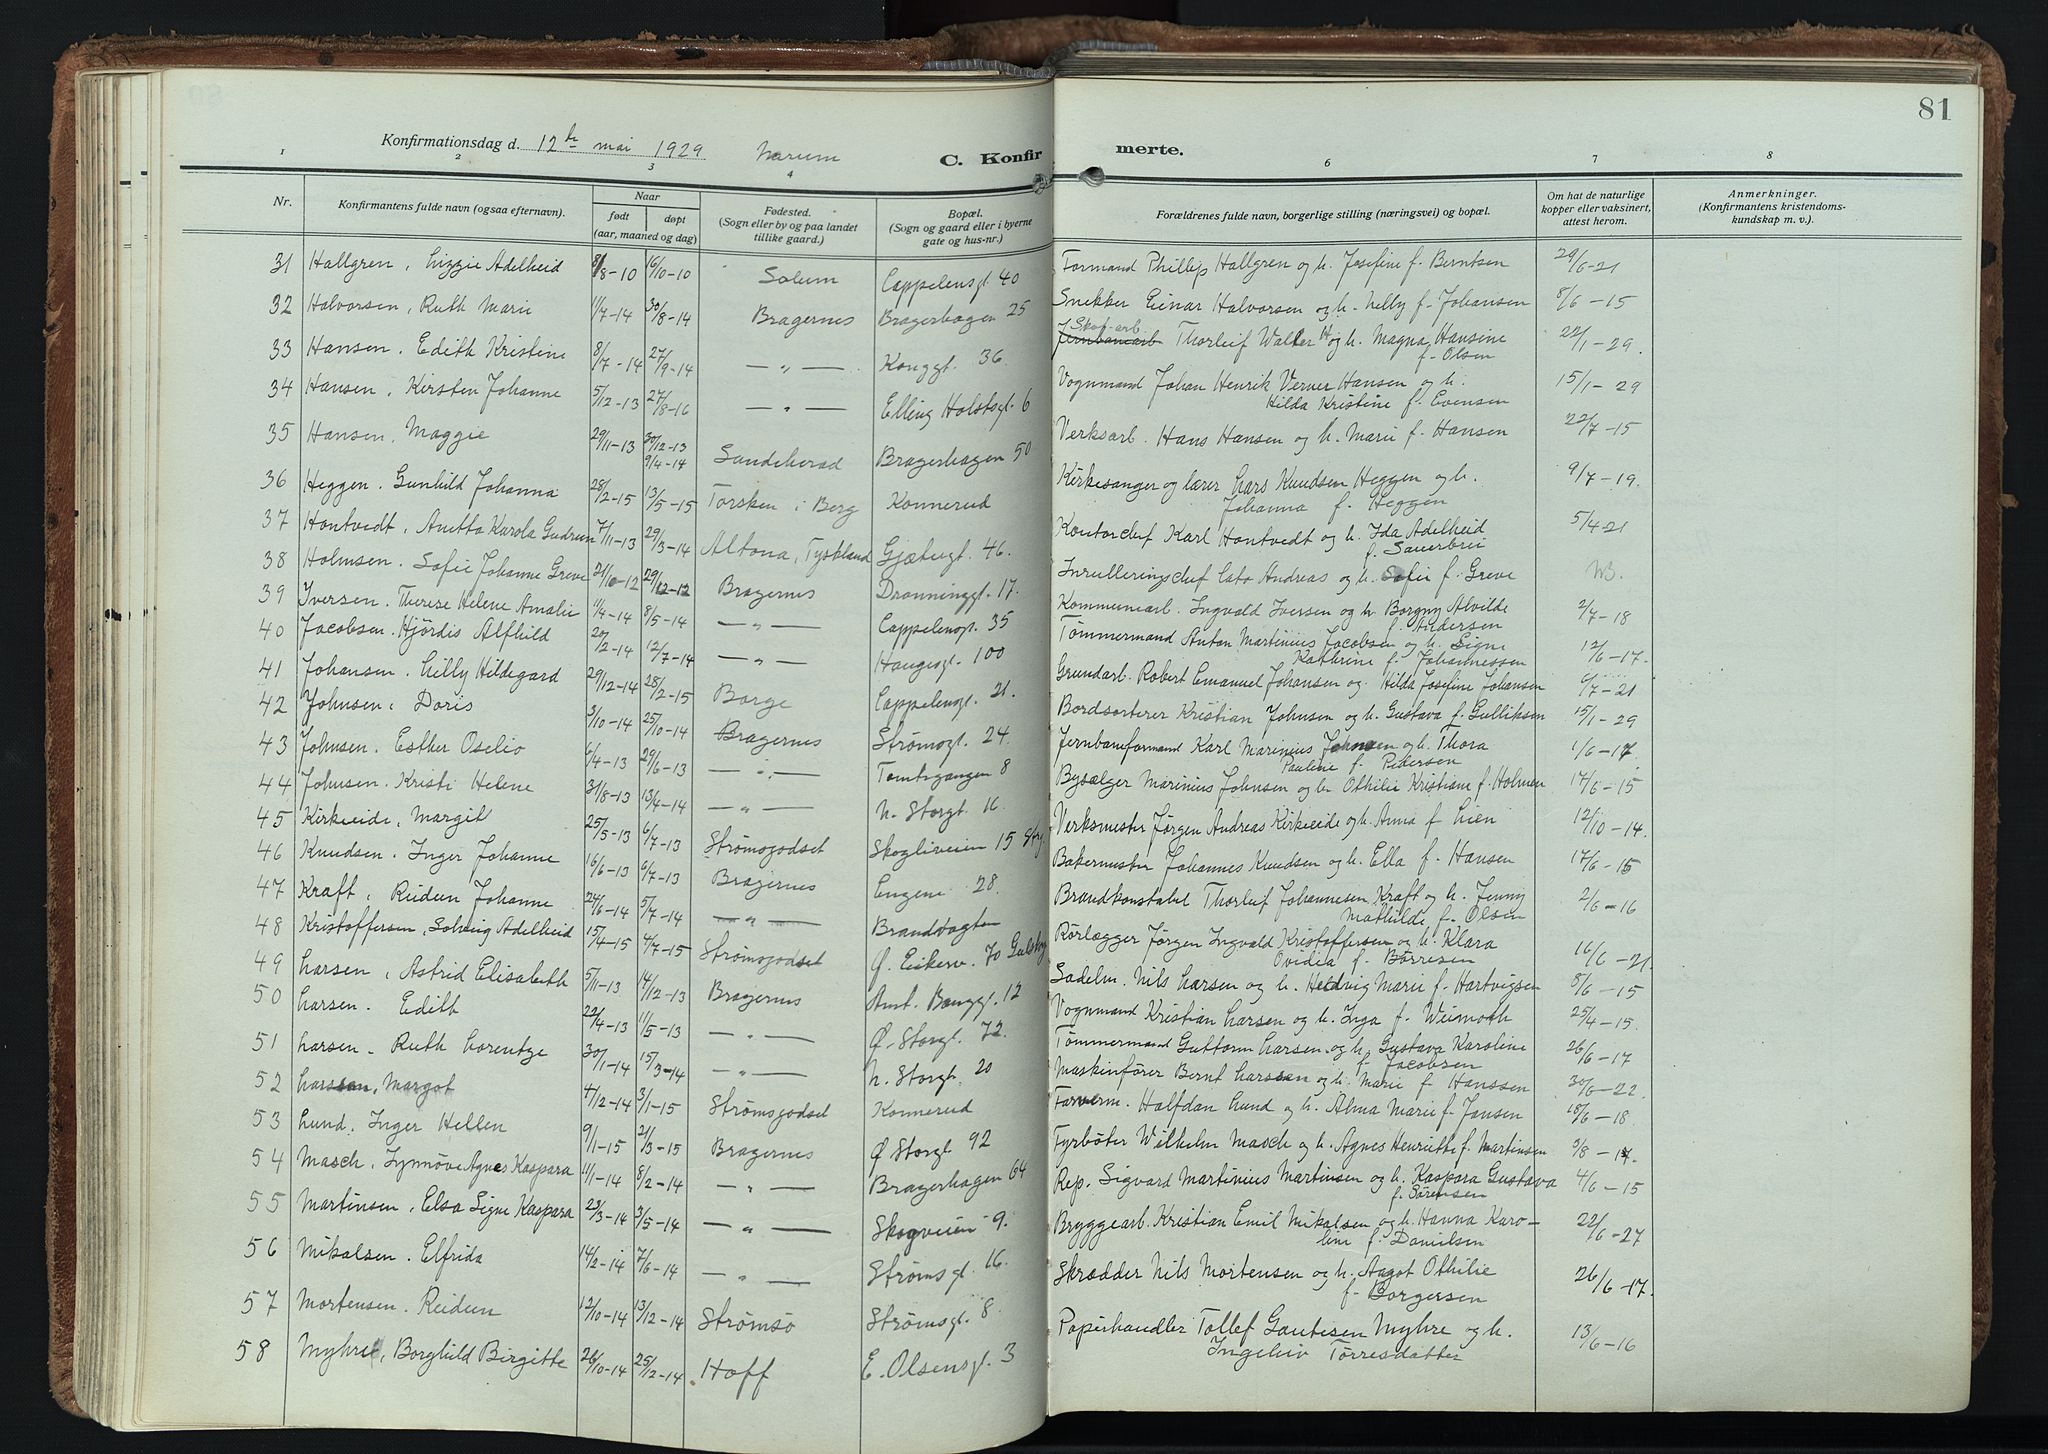 81
Konfirmationsdag d. 12te mai 1929 Narum C. Konfirmerte.
1 2 3 4 6 7 8
Nr.
Konfirmantens fulde navn (ogsaa efternavn).
Naar
født døpt
(aar, maaned og dag)
Fødested.
(Sogn eller by og paa landet
tillike gaard.)
Bopæl.
(Sogn og gaard eller i byerne
gate og hus-nr.)
Forældrenes fulde navn, borgerlige stilling (næringsvei) og bopæl.
Om hat de naturlige
kopper eller vaksinert,
attest herom.
Anmerkninger.
(Konfirmantens kristendoms-
kundskap m. v.)
31 Hallgren, Lizzie Adelheid 8/8-10 16/10-10 Solum Cappelensgt. 40 Formand Phillip Hallgren og h. Josefine f. Berntsen 29/6-21
32 Halvorsen, Ruth Marie 1/7-14 30/8-14 Bragernes Bragerhagen 25 Snekker Einar Halvorsen og h. Nelly f. Johansen 8/6-15
33 Hansen. Edith Kristine 8/7-14 27/9-14 — " — Konggt. 36 Jernbanearb Skof-arb. Thorleif Walter H og h. Magna Hansine f. Olsen 22/1-29.
34 Hansen, Kirsten Johanne 5/12-13 27/8-16 — " — Elling Holstsgt. 6 Vognmand Johan Henrik Verner Hansen og h. Hilda Kristine f. Evensen 15/1-29
35 Hansen, Maggie 29/11-13 30/12-13 9/4-14 Sandeherad Bragerhagen 50 Verksarb. Hans Hansen og h. Marie f. Hansen 22/7-15
36 Heggen. Gunhild Johanna 28/2-15 13/5-15 Torsken i Berg Konnerud Kirkesanger og lærer Lars Knudsen Heggen og h. Johanna f. Heggen 9/7-19.
37 Hontvedt, Anitta Karola Gudrun 7/11-13 29/3-14 Altona, Tyskland Gjætergt. 46. Kontorchef Karl Hontvedt og h. Ida Adelheid f. Sauerbrei 5/4-21
38 Holmsen. Sofie Johanne Greve 21/10-12 29/12-12 Bragernes Dronninggt. 17. Inrulleringschef Cato Andreas og h. Sofie f. Greve
39 Iversen. Therese Helene Amalie 11/4-14 8/5-14 — " — Cappelensgt. 35 Kommunearb. Ingvald Iversen og h. Borgny Alvilde f. Andersen 2/7-18
40 Jacobsen. Hjördis Alfhild 20/2-14 12/7-14 — " — Haugesgt. 100 Tømmermand Anton Martinius Jacobsen og h. Signe Kathrine f. Johannessen 12/6-17.
41 Johansen. Lilly Hildegard 29/12-14 28/2-15 Borge Cappelensgt. 21. Grundarb. Robert Emanuel Johansen og Hilda Josefine Johansen 6/7-21
42 Johnsen, Doris 3/10-14 25/10-14 Bragernes Strømsgt. 24. Bordsorterer Kristian Johnsen og h. Gustava f. Gulliksen 15/1-29
43 Johnsen. Esther Oselio 6/4-13 29/6-13 — " — Tomtegangen 8 Jernbaneformand Karl Marinius Johnsen og h. Thora Pauline f. Pedersen 1/6-17
44 Johnsen. Kristi Helene 31/8-13 13/4-14 — " — N. Storgt. 16. Bysælger Marinius Johnsen og h. Othilie Kristiane f. Holmen 17/6-15
45 Kirkeeide, Margit 25/5-13 6/7-13 Strømsgodset Skogliveien 15 Verksmester Jørgen Andreas Kirkeeide og h. Anna f. Lien 12/10-14.
46 Knudsen. Inger Johanne 16/6-13 6/7-13 Bragernes Engene 28. Bakermester Johannes Knudsen og h. Ella f. Hansen 17/6-15
47 Kraft, Reidun Johanne 24/6-14 5/7-14 — " — Brandvagten Brandkonstabel Thorleif Johannesen Kraft og h. Jenny Mathilde f. Olsen 2/6-16
48 Kristoffersen, Solveig Adelheid 15/4-15 4/7-15 Strømsgodset Ø. Eikerv. 70 Gulskog Rørlægger Jørgen Ingvald Kristoffersen og h. Klara Ovidia f. Børresen 16/6-21.
49 Larsen, Astrid Elisabeth 5/11-13 14/12-13 Bragernes Amt. Banggt. 12 Sadelm. Nils Larsen og h. Hedvig Marie f. Hartvigsen 8/6-15
50 Larsen. Edith 22/4-13 11/5-13 — " — Ø. Storgt. 72. Vognmand Kristian Larsen og h. Inga f. Weimoth 25/4-15.
51 Larsen. Ruth Lorentze 30/1-14 15/3-14 — " — N. Storgt. 20 Tømmermand Guttorm Larsen og h. Gustava Karoline f. Jacobsen 26/6-17
52 Larssen, Margot 4/12-14 3/1-15 Strømsgodset Konnerud Maskinfører Bernt Larssen og h. Marie f. Hanssen 30/6-22
53 Lund. Inger Hellen 9/1-15 21/3-15 Bragernes Ø Storgt 92 Farverm. Halfdan Lund og h. Alma Marie f. Jansen 18/6-18.
54 Masch. Synnöve Agnes Kaspara 11/1-14 8/2-14 — " — Bragerhagen 64 Fyrbøter Wilhelm Masch og h. Agnes Henriette f. Martinsen 3/8-17.
55 Martinsen, Elsa Signe Kaspara 23/3-14 3/5-14 — " — Skogveien 9. Rep. Sigvard Martinius Martinsen og h. Kaspara Gustava f. Sørensen 4/6-15
56 Mikalsen. Elfrida 14/2-14 7/6-14 — " — Strømsgt. 16. Bryggearb. Kristian Emil Mikalsen og h. Hanna Karoline f. Danielsen 22/6-27
57 Mortensen. Reidun 12/10-14 13/12-14 Strømsø Strømsgt. 8. Skrædder Nils Mortensen og h. Aagot Othilie f. Borgersen 26/6-17.
58 Myhre, Borghild Birgitte 26/10-14 25/12-14 Hoff E. Olsensgt. 3 Papirhandler Tollef Gautesen Myhre og h. Ingeliv Torresdatter 13/6-16